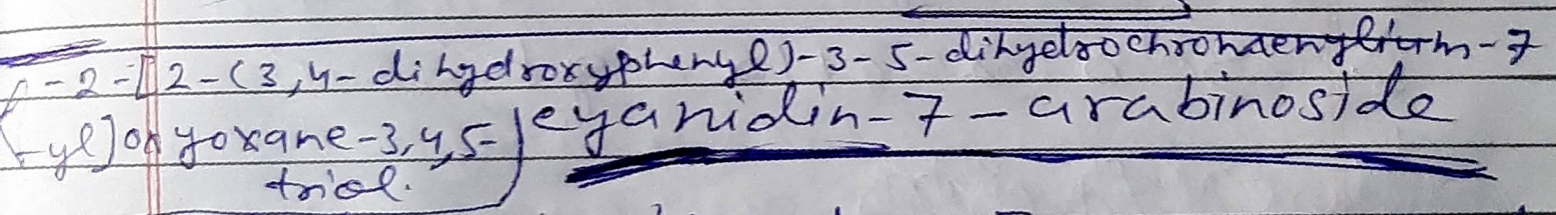 -2-[2-(3,4-dihydroxyphenyl)-3-5-dihydrochromenylium-7
-yl]oxyoxane-3,4,5-
triol.
cyanidin-7-arabinoside